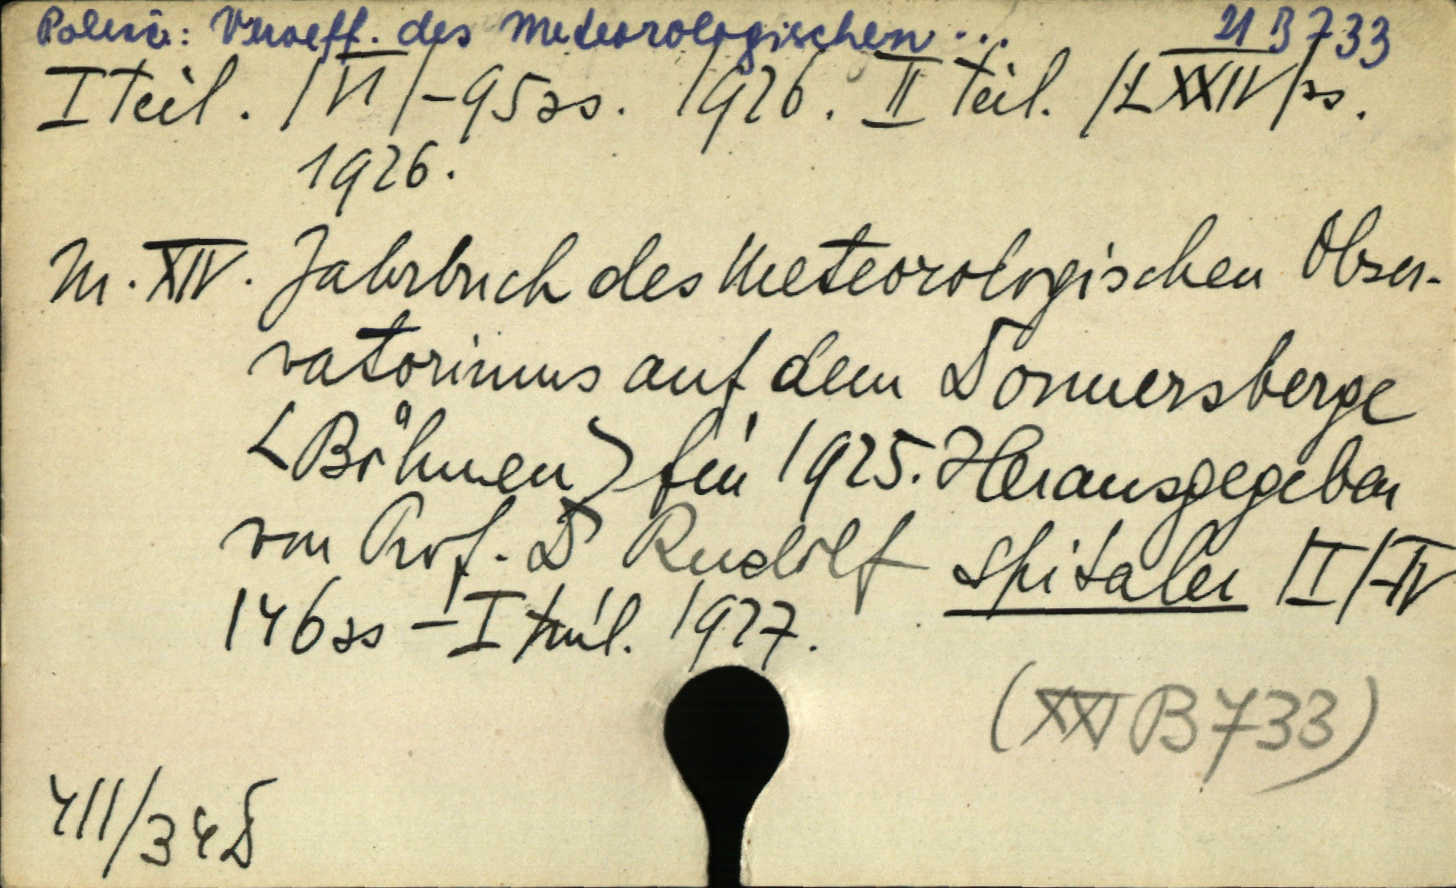 Policie: Veroeff. des Meteorologischen... 21 B 733
I teil. /VI/-95 ss. 1926. II teil. /LXXIV/ ss.
1926.
m. XIV. Jahrbuch des Meteorologischen Obser-
vatoriums auf dem Donnersberge
<Böhmen> für 1925. Herausgegeben
von Prof. Dr Rudolf Spitaler /I/-IV
146 ss - I teil. 1927.
(XXI B 733)
411/34 D